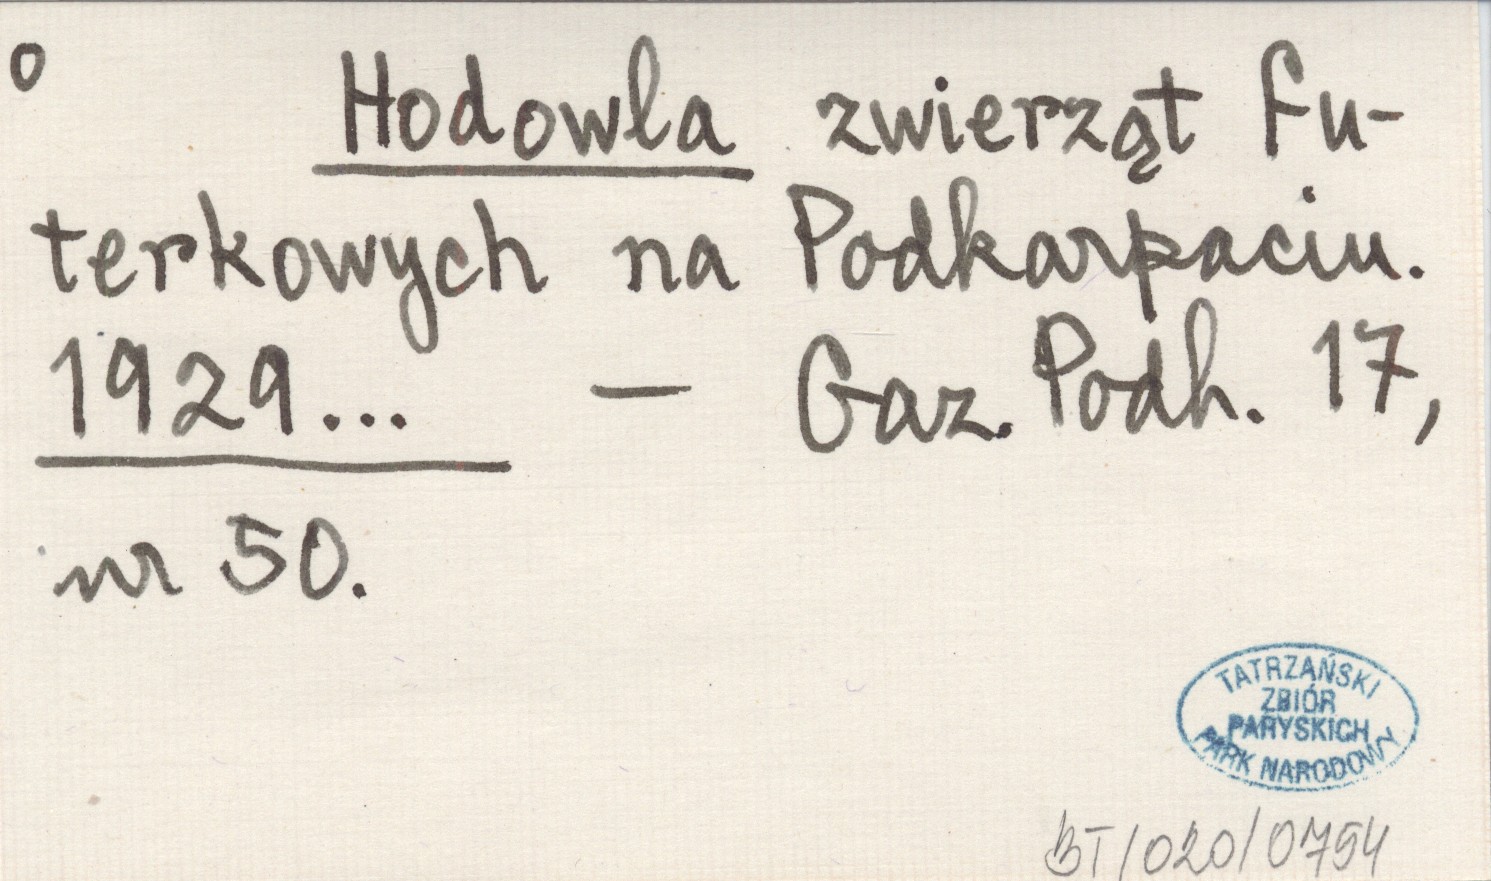 o
Hodowla zwierząt fu-
terkowych na Podkarpaciu.
1929... — Gaz. Podh. 17,
nr 50.
TATRZAŃSKI
ZBIÓR
PARYSKICH
PARK NARODOWY
BT/020/0754